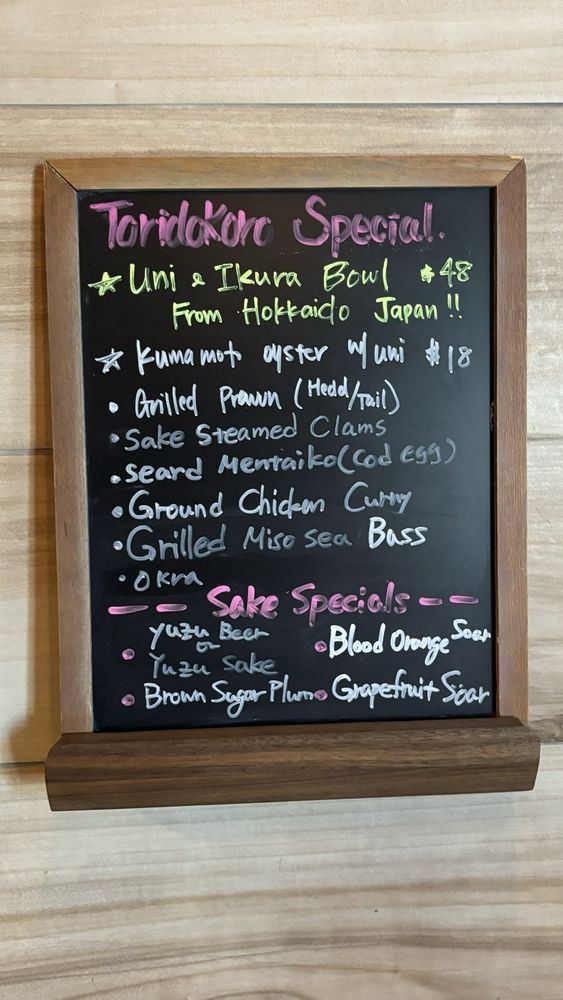 Toridokoro Special.
☆ Uni & Ikura Bowl $48
From Hokkaido Japan!!
☆ Kumamot oyster w/ uni $18
• Grilled Prawn (Head/Tail)
• Sake Steamed Clams
• Seard Mentaiko (Cod egg)
• Ground Chicken Curry
• Grilled Miso Sea Bass
• Okra
-- Sake Specials --
• Yuzu Beer
or
Yuzu Sake
• Blood Orange Soar
• Brown Sugar Plum
• Grapefruit Soar